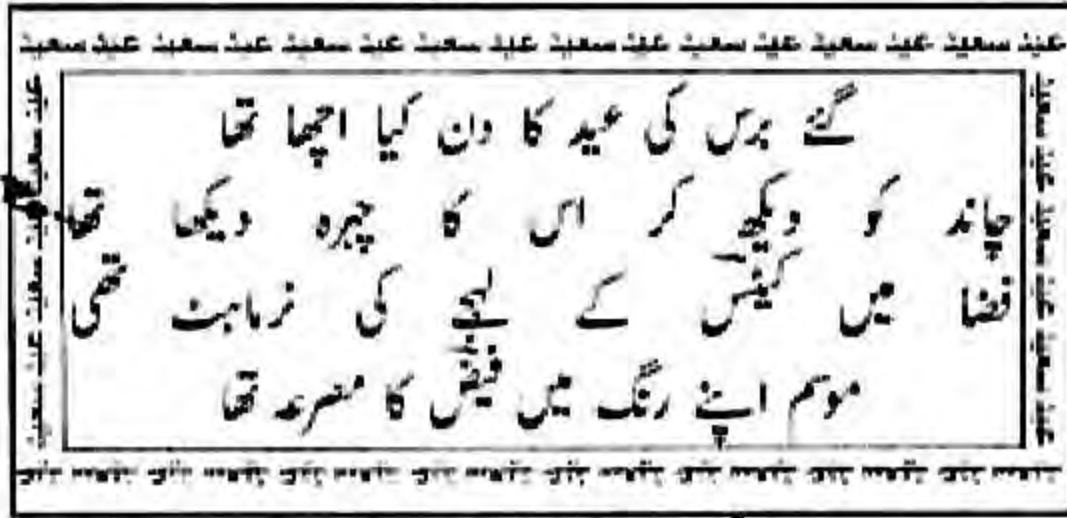 عید سعید عید سعید عید سعید عید سعید عید سعید عید سعید عید سعید عید سعید
گئے برس کی عید کا دن کیا اچھا تھا
چاند کو دیکھ کر اس کا چہرہ دیکھا تھا
فضا میں کیٹس کے لہجے کی نرماہٹ تھی
موسم اپنے رنگ میں فیض کا مصرعہ تھا